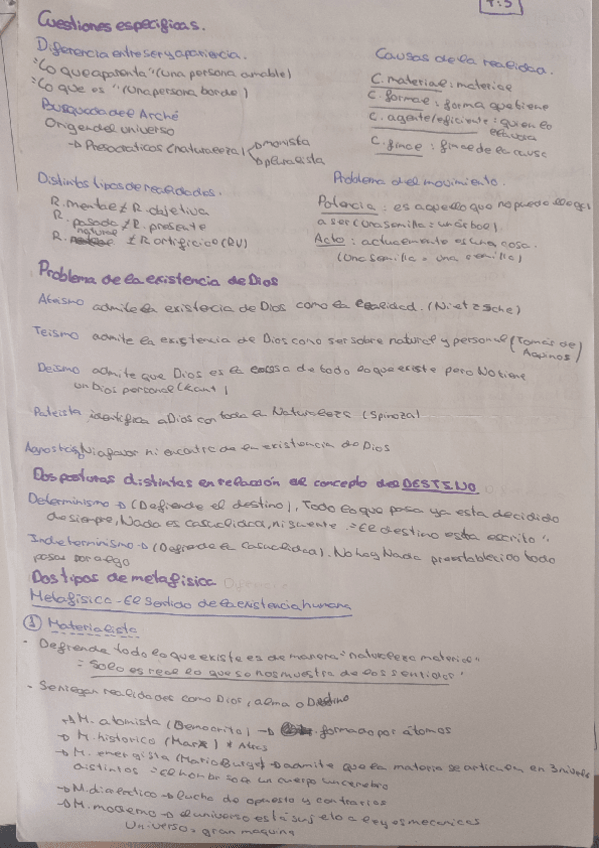 T:5
Cuestiones especificas.
Diferencia entre ser y apariencia.
"Lo que aparenta" (una persona amable)
"Lo que es" (una persona borde)
Busqueda del Arché
Origen del universo
→ Presocraticos (naturaleza) monista
pluralista
Causas de la realidad.
C. material: material
C. formal: forma que tiene
C. agente/eficiente: quien lo
C. final: final de la causa
Distintos tipos de realidades.
R. mental ≠ R. objetiva
R. pasada ≠ R. presente
R. natural ≠ R artificial (RV)
Problema del movimiento.
Potencia: es aquello que no puedo llegar
a ser (Una semilla: un árbol).
Acto: actualmente es una cosa.
(Una semilla = una semilla)
Problema de la existencia de Dios
Ateismo admite la existecia de Dios como la realidad. (Nietzsche)
Teismo admite la existencia de Dios como ser sobre natural y personal (Tomás de
Aquinos)
Deismo admite que Dios es la causa de todo lo que existe pero No tiene
un Dios personal (Kant)
Pateista identifica a Dios con toda la Naturaleza (Spinoza)
Ni a favor ni en contra de la existencia de Dios
Dos posturas distintas en relacción al concepto del DESTINO
Determinismo → (Defiende el destino), Todo lo que pasa ya esta decidido
desiempre, Nada es casualidad, ni suerte. "El destino esta escrito".
Indeterminismo → (Defiende la casualidad). No hay Nada preestablecido todo
pasa por algo
Dos tipos de metafisica
Metafisica - El sentido de la existencia humana
① Materialista
- Defiende todo lo que existe es de manera "naturaleza material"
= Solo es real lo que se nos muestra de los sentidos"
- Se niegan realidades como Dios, alma o Destino
→ M. atomista (Democrito) → formado por átomos
→ M. historico (Marx)
→ M. energista (Mario Bunge) → admite que la materia se articula en 3 niveles
distintos
→ M. dialectico → lucha de opuesto y contrarios
→ M. moderno → el universo está sujeto a leyes mecanicas
Universo = gran maquina